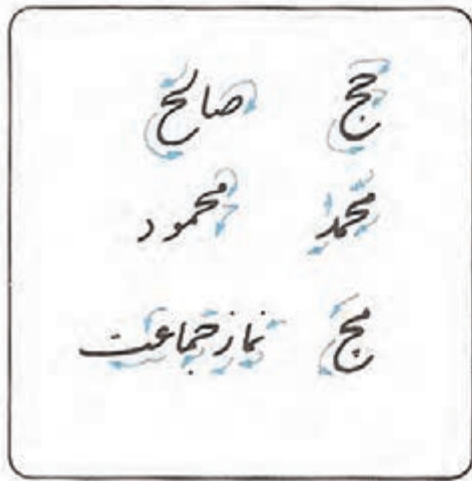 حج صالح
محمد محمود
مچ نماز جماعت